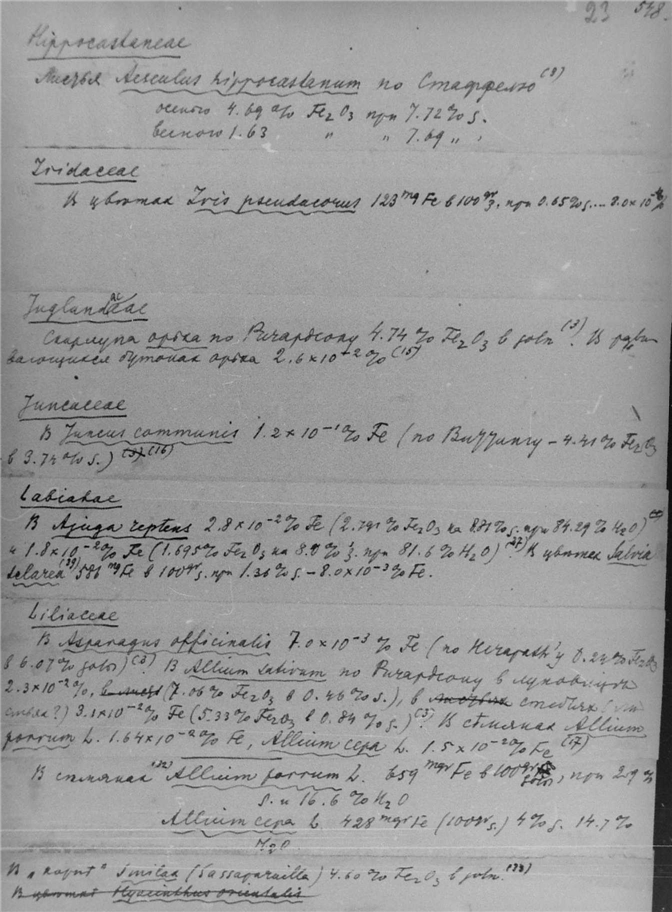 23 548.
Hippocastaneae
Листья Aesculus hippocastanum по Стаффелю (8)
осенью 4.69% Fe2O3 при 7.72% з.
весною 1.63 " " 7.69 " "
Iridaceae
В цветках Iris pseudacorus 123 mg Fe в 100 gr з. при 0.65% з. — 8.0×10
Juglandaceae
Скорлупа орѣха по Ричардсону 4.74% Fe2O3 в золѣ (3). В
бутонах орѣха 2.6×10-2% (15)
Juncaceae
В Juncus communis 1.2×10-1% Fe (по — 4.41% Fe2O3
в 3.74% з.) (3) (16)
Labiatae
В Ajuga reptens 2.8×10-2% Fe (Fe2O3 на з. при 84.29% H2O)
и 1.8×10-2% Fe (1.695% Fe2O3 на з. при 81.6% H2O) (27) В цветках Salvia
sclarea (39) 586 mg Fe в 100 gr з. при 1.36% з. — 8.0×10-3% Fe.
Liliaceae
В Asparagus officinalis 7.0×10-3% Fe (по Herapath'у Fe2O3
в 6.07% золы) (3). В Allium sativum по Ричардсону в луковицах
2.3×10-2%, (7.06% Fe2O3 в 0.46% з.), в стеблях
3.1×10-2% Fe (5.33% Fe2O3 в 0.84% з.) (3). В сѣмянах Allium
porrum L. 1.64×10-2% Fe, Allium cepa L. 1.5×10-2% Fe (17)
В сѣмянах (22) Allium porrum L. 659 mgr Fe в 100 gr золы, при
з. и 16.6% H2O
Allium cepa L. 428 mgr Fe (100 gr з.) 4% з. 14.7%
H2O
В "корнѣ" Smilax (Sassaparilla) 4.60% Fe2O3 в золѣ. (23)
В цветках Hyacinthus orientalis